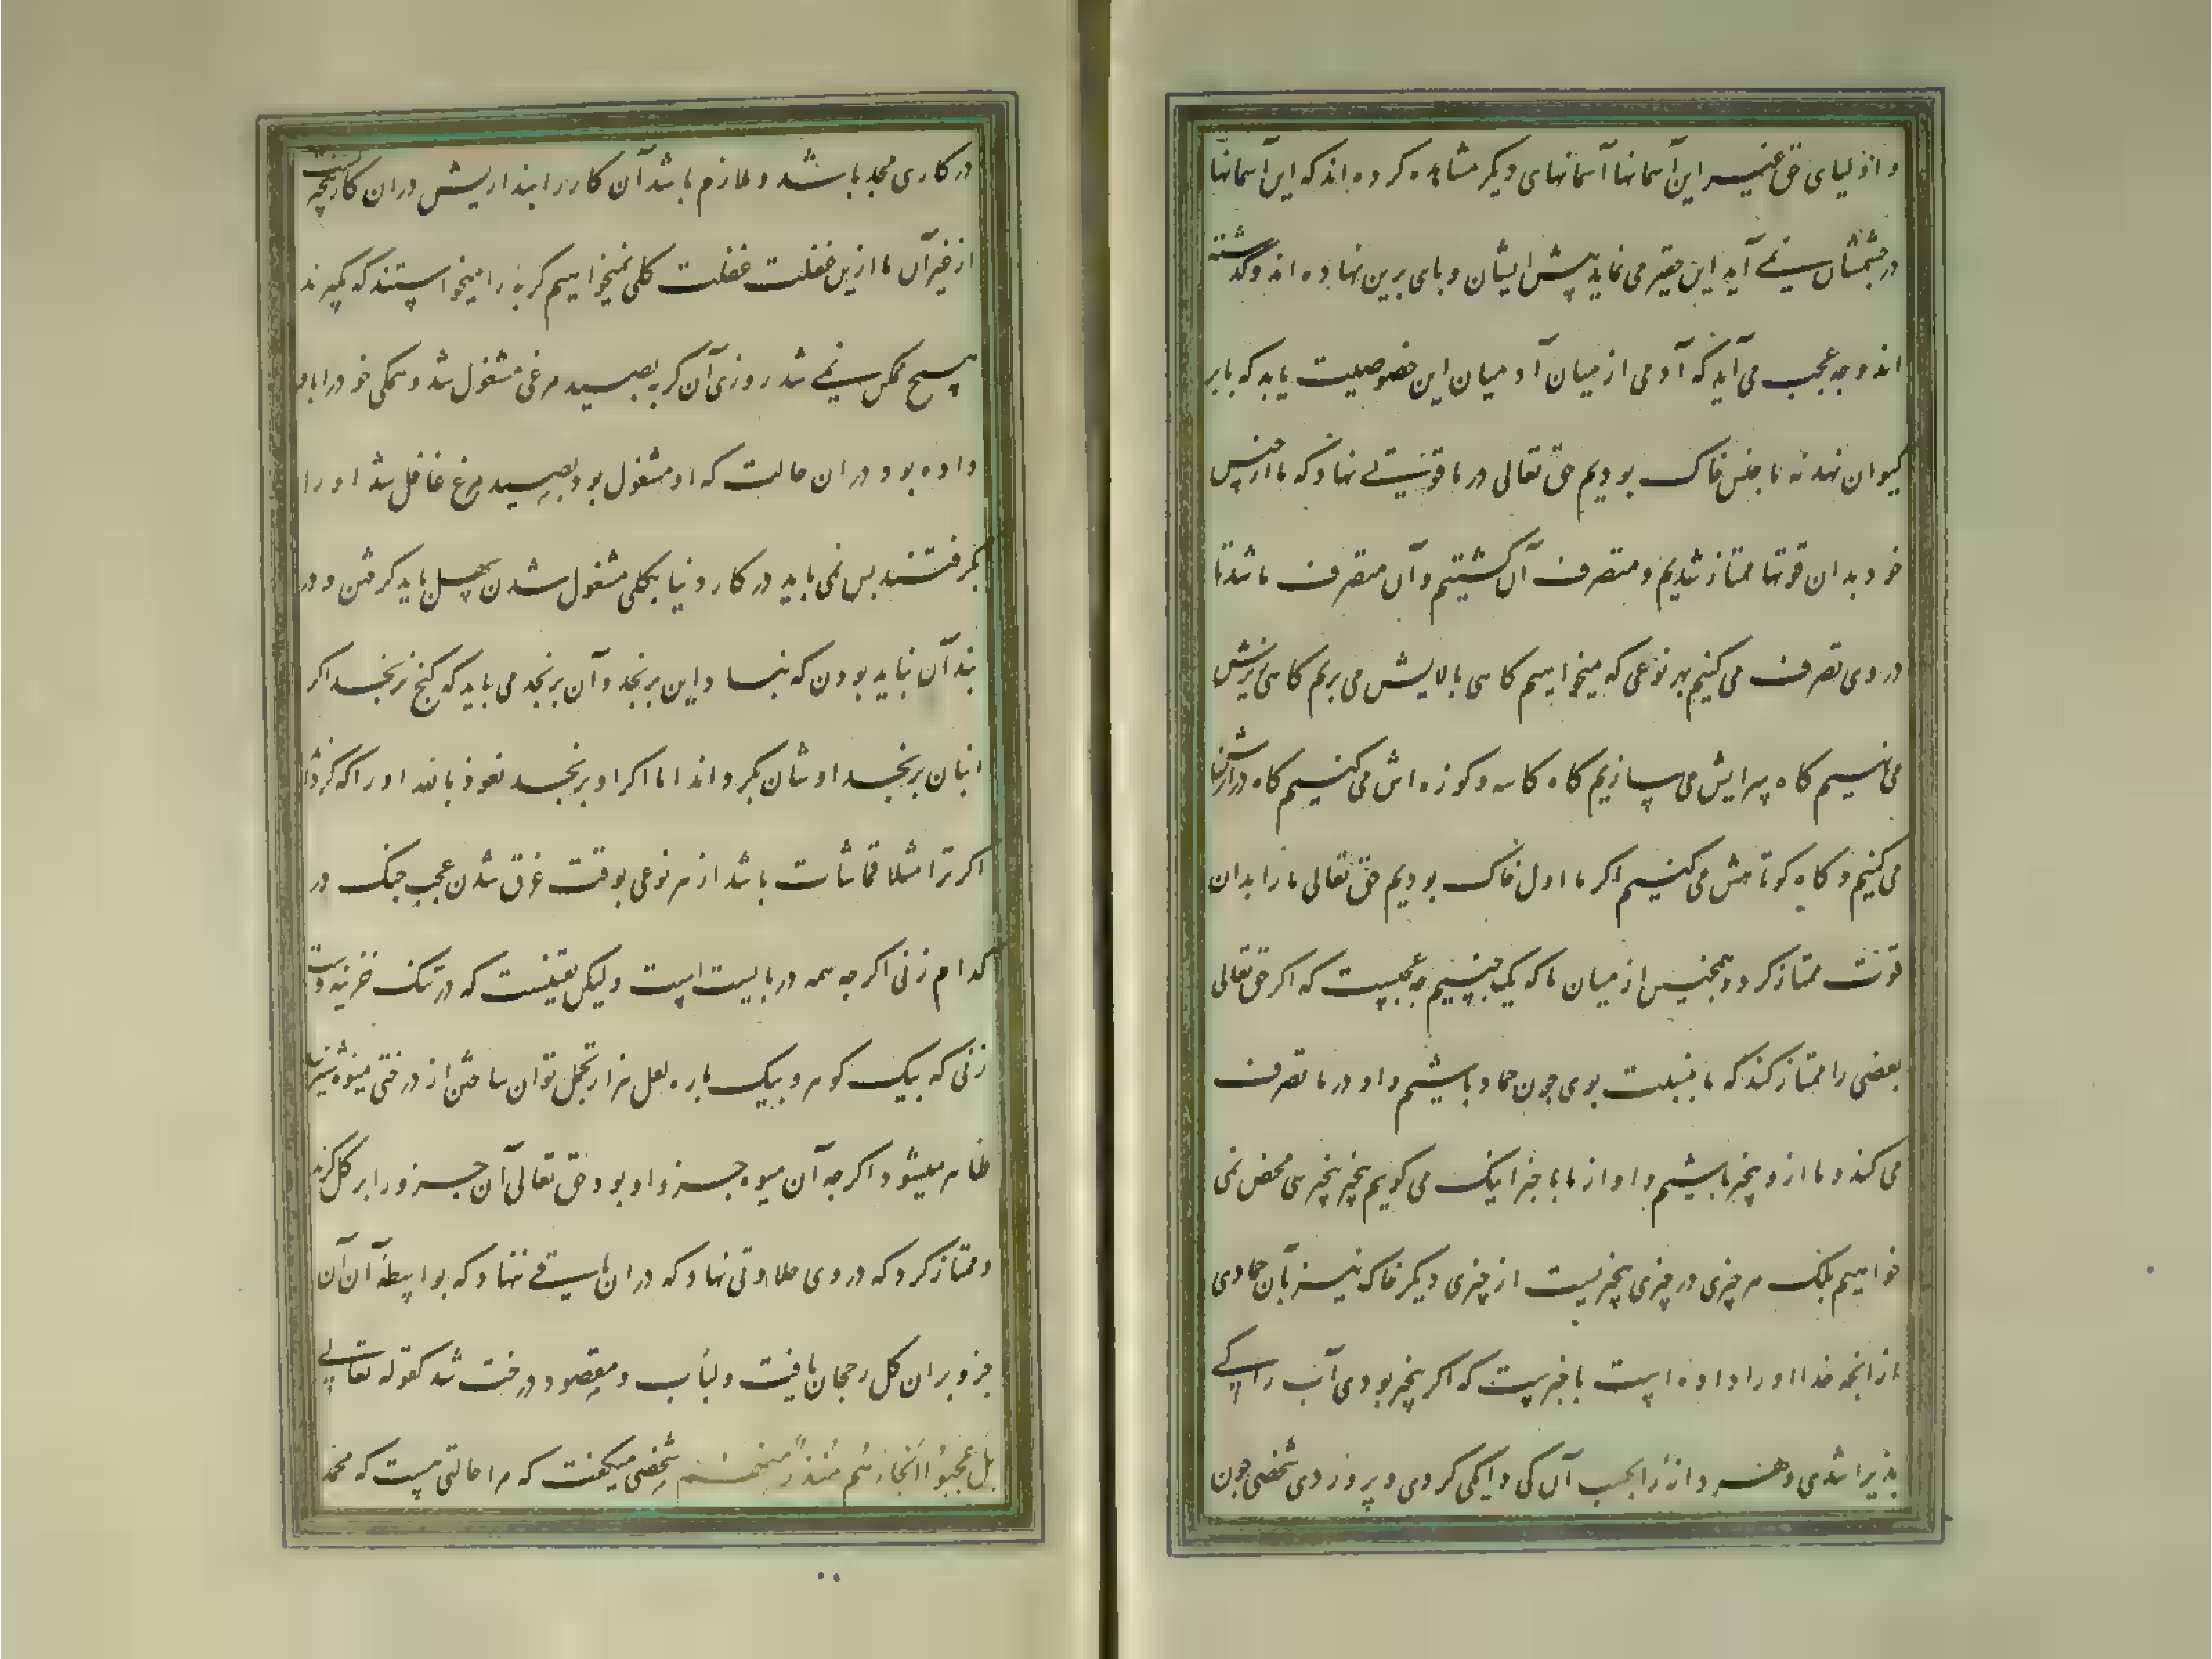 و اولیای حق غیر این آسمانها آسمانهای دیگر مشاهده کرده اند که این آسمانها
در چشمشان نمی آید این حقیر می نماید پیش ایشان و پای برین نهاده اند و گذشته
اند و چه عجب می آید که آدمی از میان آدمیان این خصوصیت یابد که پا بر
کیوان نهد نه ما جنس خاک بودیم حق تعالی در ما قوتی نهاد که ما از جنس
خود بدان قوتها ممتاز شدیم و متصرف آن گشتیم و آن متصرف ما شد تا
در وی تصرف می کنیم بهر نوعی که میخواهیم گاهی بالایش می بریم گاهی زیرش
می نهیم گاه سرایش می سازیم گاه کاسه و کوزه اش می کنیم گاه درازش
می کنیم و گاه کوتاهش می کنیم اگر ما اول خاک بودیم حق تعالی ما را بدان
قوت ممتاز کرد و همچنین از میان ما که یک جنسیم چه عجبست که اگر حق تعالی
بعضی را ممتاز کند که ما بنسبت بوی چون جماد باشیم و او در ما تصرف
می کند و ما ازو بیخبر باشیم و او از ما با خبر اینک می گویم بیخبر بیخبری محض نمی
خواهیم بلک هر چیزی در چیزی بیخبریست از چیزی دیگر خاک نیز بآن جمادی
از انچه خدا او را داده است با خبرست که اگر بیخبر بودی آب را کی
پذیرا شدی و هر دانه را بحسب آن کی دایگی کردی و پروردی شخصی چون
در کاری مجد باشد و ملازم باشد آن کار را بیداریش در آن کار بیخبریست
از غیر آن ما ازین غفلت غفلت کلی نمیخواهیم گربه را میخواستند که بگیرند
هیچ ممکن نمی شد روزی آن گربه بصید مرغی مشغول شد و همگی خود را بآن
داده بود در آن حالت که او مشغول بود بصید مرغ غافل شد او را
بگرفتند پس نمی باید در کار دنیا بکلی مشغول شدن سهل باید گرفتن و در
بند آن نباید بودن که نبادا این برنجد و آن برنجد می باید که گنج نرنجد اگر
اینان برنجند اوشان بگرداند اما اگر او برنجد نعوذ بالله او را که گرداند
اگر ترا مثلا قماشات باشد از هر نوعی بوقت غرق شدن عجب چنگ در
کدام زنی اگر چه همه دربایست است ولیکن یقینست که در تنگ خزینه دست
زنی که بیک گوهر و بیک پاره لعل هزار تجمل توان ساختن از درختی میوه شیرین
ظاهر میشود اگر چه آن میوه جزو او بود حق تعالی آن جزو را بر کل گزید
و ممتاز کرد که در وی حلاوتی نهاد که در آن باقی ننهاد که بواسطه آن آن
جزو بر آن کل رجحان یافت و لباب و مقصود درخت شد کقوله تعالی
بل عجبوا ان جاءهم منذر منهم شخصی میگفت که مرا حالتی هست که محمد